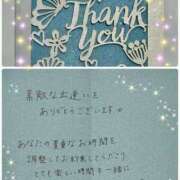 Thank
You
素敵な出逢いを
ありがとうございます
あなたの貴重なお時間を
調整してお約束してくださり
とても楽しい時間を一緒に